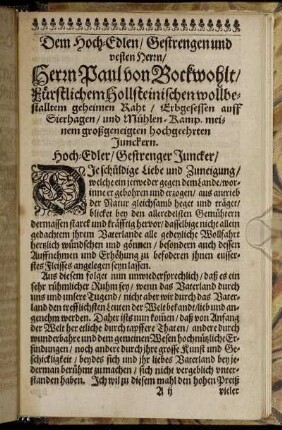 Dem Hoch-Edlen/ Gestrengen und
vesten Herrn/
Herrn Paul von Bockwohlt/
Fürstlichem Hollsteinischen wollbe-
stalltem geheimen Raht/ Erbgesessen auff
Sierhagen/ und Mühlen-Kamp. mei-
nem großgeneigten hochgeehrten
Junckern.
Hoch-Edler/ Gestrenger Juncker/
DIe schüldige Liebe und Zuneigung/
welche ein jerweder gegen dem Lande/ wor-
inn er gebohren und erzogen/ aus antrieb
der Natur gleichsamb heget und träget/
blicket bey den alleredelsten Gemühtern
dermassen starck und kräfftig hervor/ dasselbige nicht allein
gedachtem ihrem Vaterlande alle gedeyliche Wollfahrt
hertzlich wündschen und gönnen/ besondern auch dessen
Auffnehmen und Erhöhung zu befodern ihnen eusser-
stes Fleisses angelegen seyn lassen.
Aus diesem folget nun unwiedersprechlich/ daß es ein
sehr rühmlicher Ruhm sey/ wenn das Vaterland durch
uns und unsere Tugend/ nicht aber wir durch das Vater-
land den trefflichsten Leuten der Welt bekand/ lieb und an-
genehm werden. Daher ists nun kommen/ daß von Anfang
der Welt her etliche durch tapffere Thaten/ andere durch
wunderbahre und dem gemeinen Wesen hochnützliche Er-
findungen/ noch andere durch ihre grosse Kunst und Ge-
schickligkeit/ beydes sich und ihr liebes Vaterland bey je-
derman berühmt zu machen/ sich nicht vergeblich unter-
standen haben. Ich wil zu diesem mahl den hohen Preiß
A ij vieler